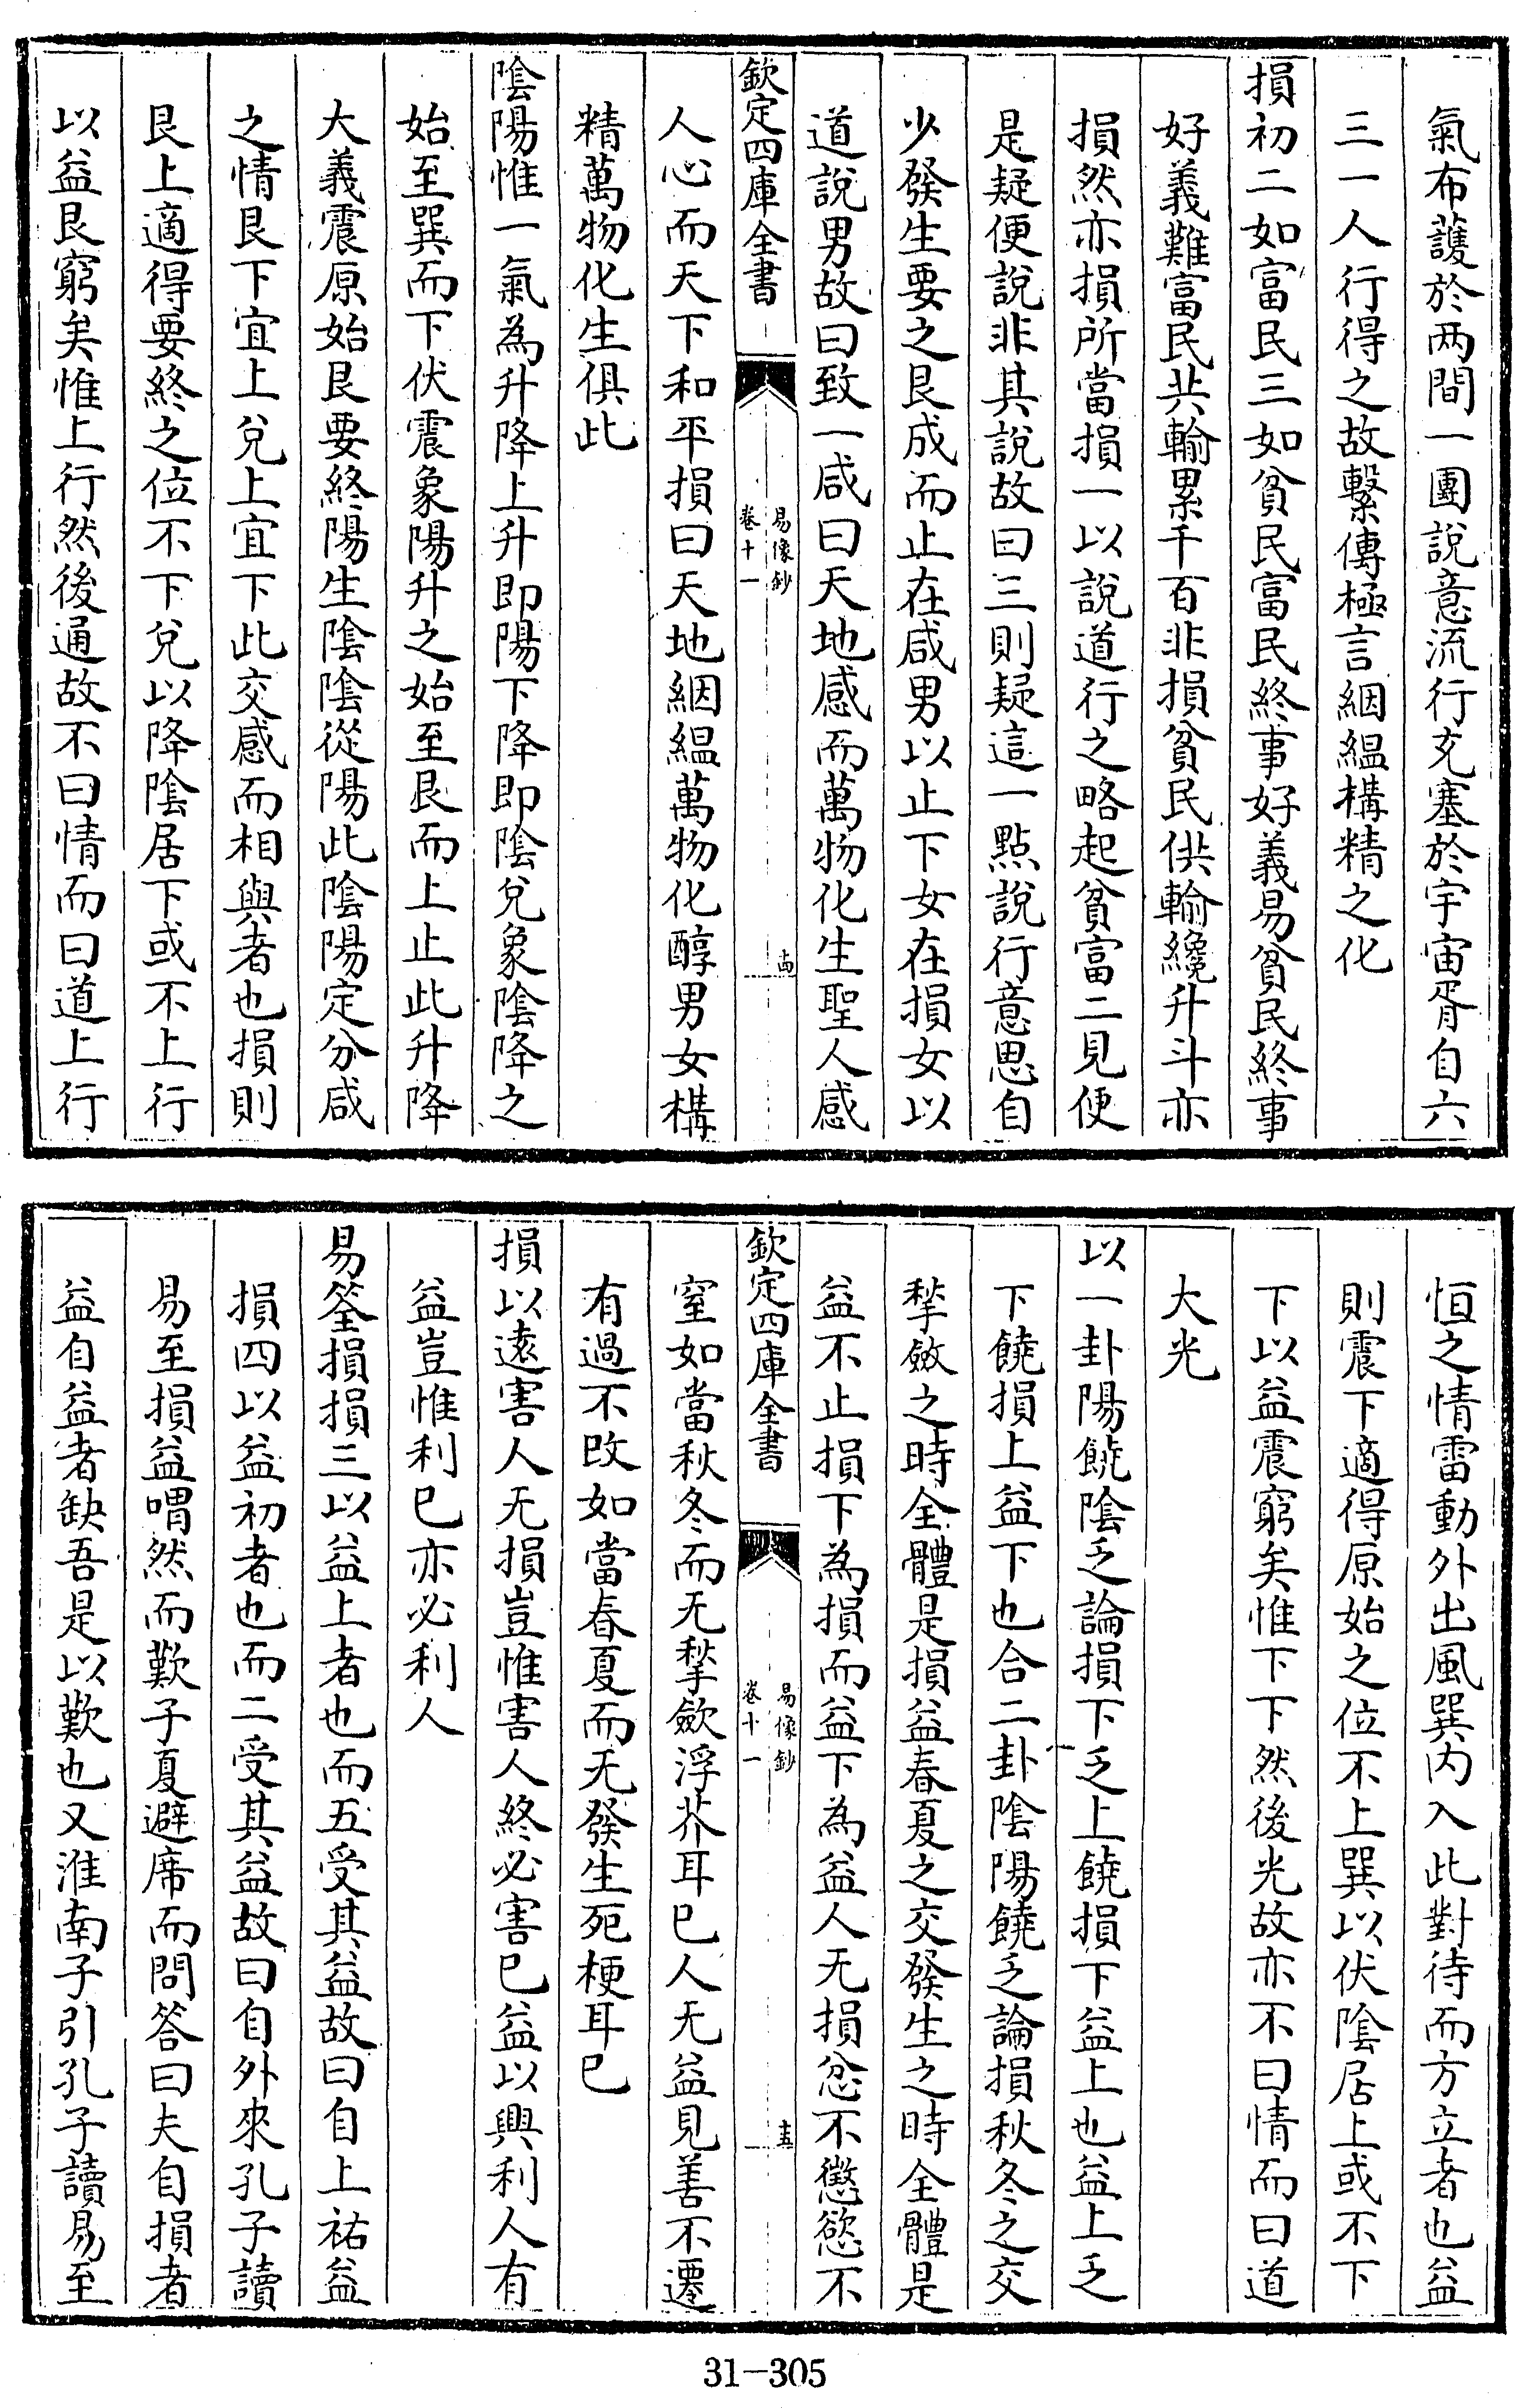 氣布護於两間一團說意流行充塞於宇宙胥自六
三一人行得之故繫傳極言絪緼構精之化
損初二如富民三如貧民富民終事好義易貧民終事
好義難富民共輸累千百非損貧民供輸纔升斗亦
損然亦損所當損一以說道行之略起貧富二見便
是疑便說非其說故曰三則疑這一點說行意思自
少發生要之艮成而止在咸男以止下女在損女以
道說男故曰致一咸曰天地感而萬物化生聖人感
欽定四庫全書
易像鈔
卷十一
十四
人心而天下和平損曰天地絪緼萬物化醇男女構
精萬物化生俱此
陰陽惟一氣為升降上升即陽下降即陰兌象陰降之
始至巽而下伏震象陽升之始至艮而上止此升降
大義震原始艮要終陽生陰陰從陽此陰陽定分咸
之情艮下宜上兌上宜下此交感而相與者也損則
艮上適得要終之位不下兌以降陰居下或不上行
以益艮窮矣惟上行然後通故不曰情而曰道上行
恒之情雷動外出風巽内入此對待而方立者也益
則震下適得原始之位不上巽以伏陰居上或不下
下以益震窮矣惟下下然後光故亦不曰情而曰道
大光
以一卦陽饒陰乏論損下乏上饒損下益上也益上乏
下饒損上益下也合二卦陰陽饒乏論損秋冬之交
揫斂之時全體是損益春夏之交發生之時全體是
益不止損下為損而益下為益人无損忿不懲慾不
欽定四庫全書
易像鈔
卷十一
十五
窒如當秋冬而无揫斂浮荞耳已人无益見善不遷
有過不改如當春夏而无發生死梗耳已
損以遠害人无損豈惟害人終必害已益以興利人有
益豈惟利已亦必利人
易筌損損三以益上者也而五受其益故曰自上祐益
損四以益初者也而二受其益故曰自外來孔子讀
易至損益喟然而歎子夏避席而問答曰夫自損者
益自益者缺吾是以歎也又淮南子引孔子讀易至
31-305